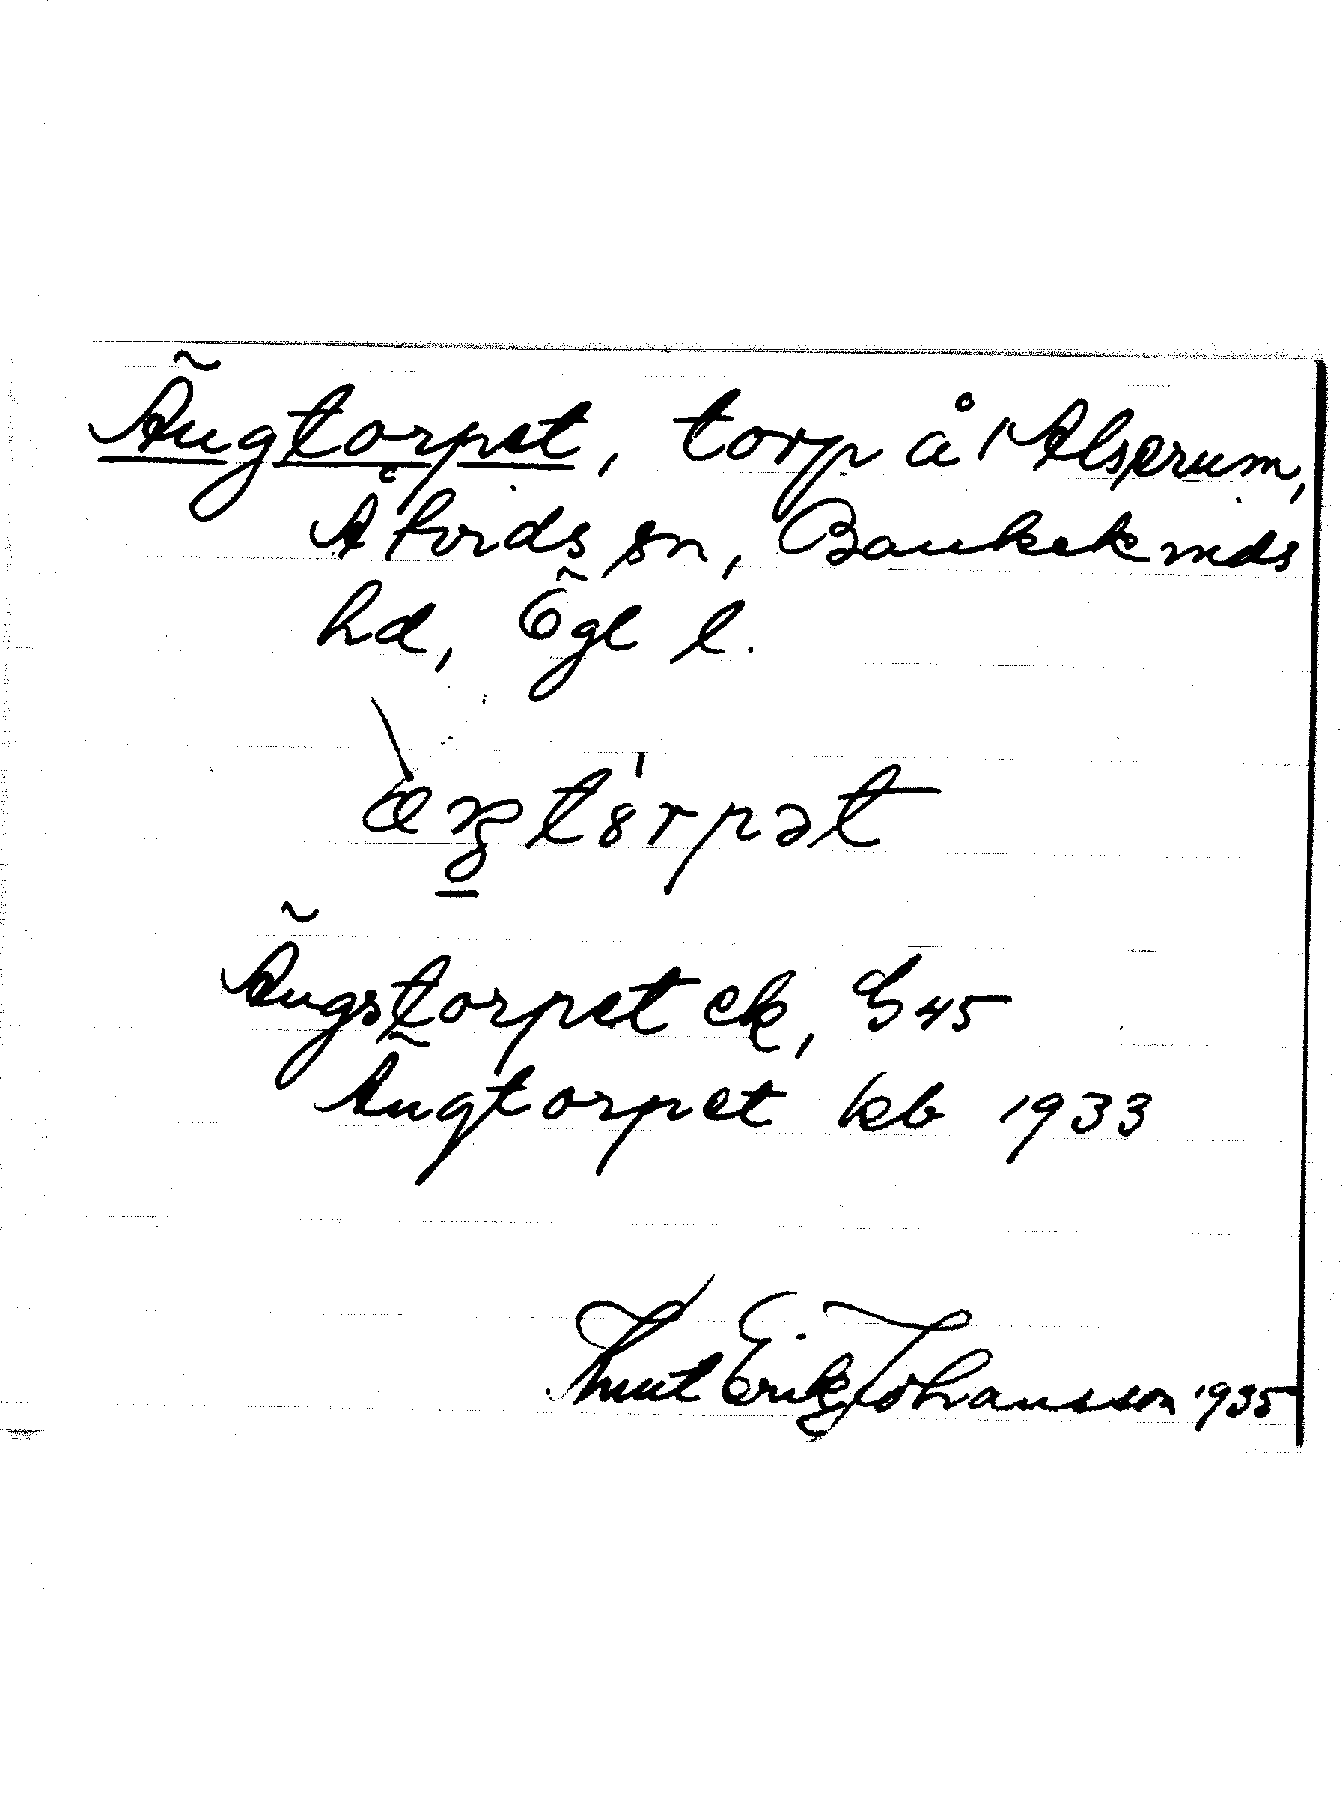 Ängtorpet, torp å 1 Alserum,
Åtvids sn, Bankekinds
hd, Ögl l.
Ängstorpet ek, G 45
Ängtorpet kb 1933
Knut Erik Johansson 1935